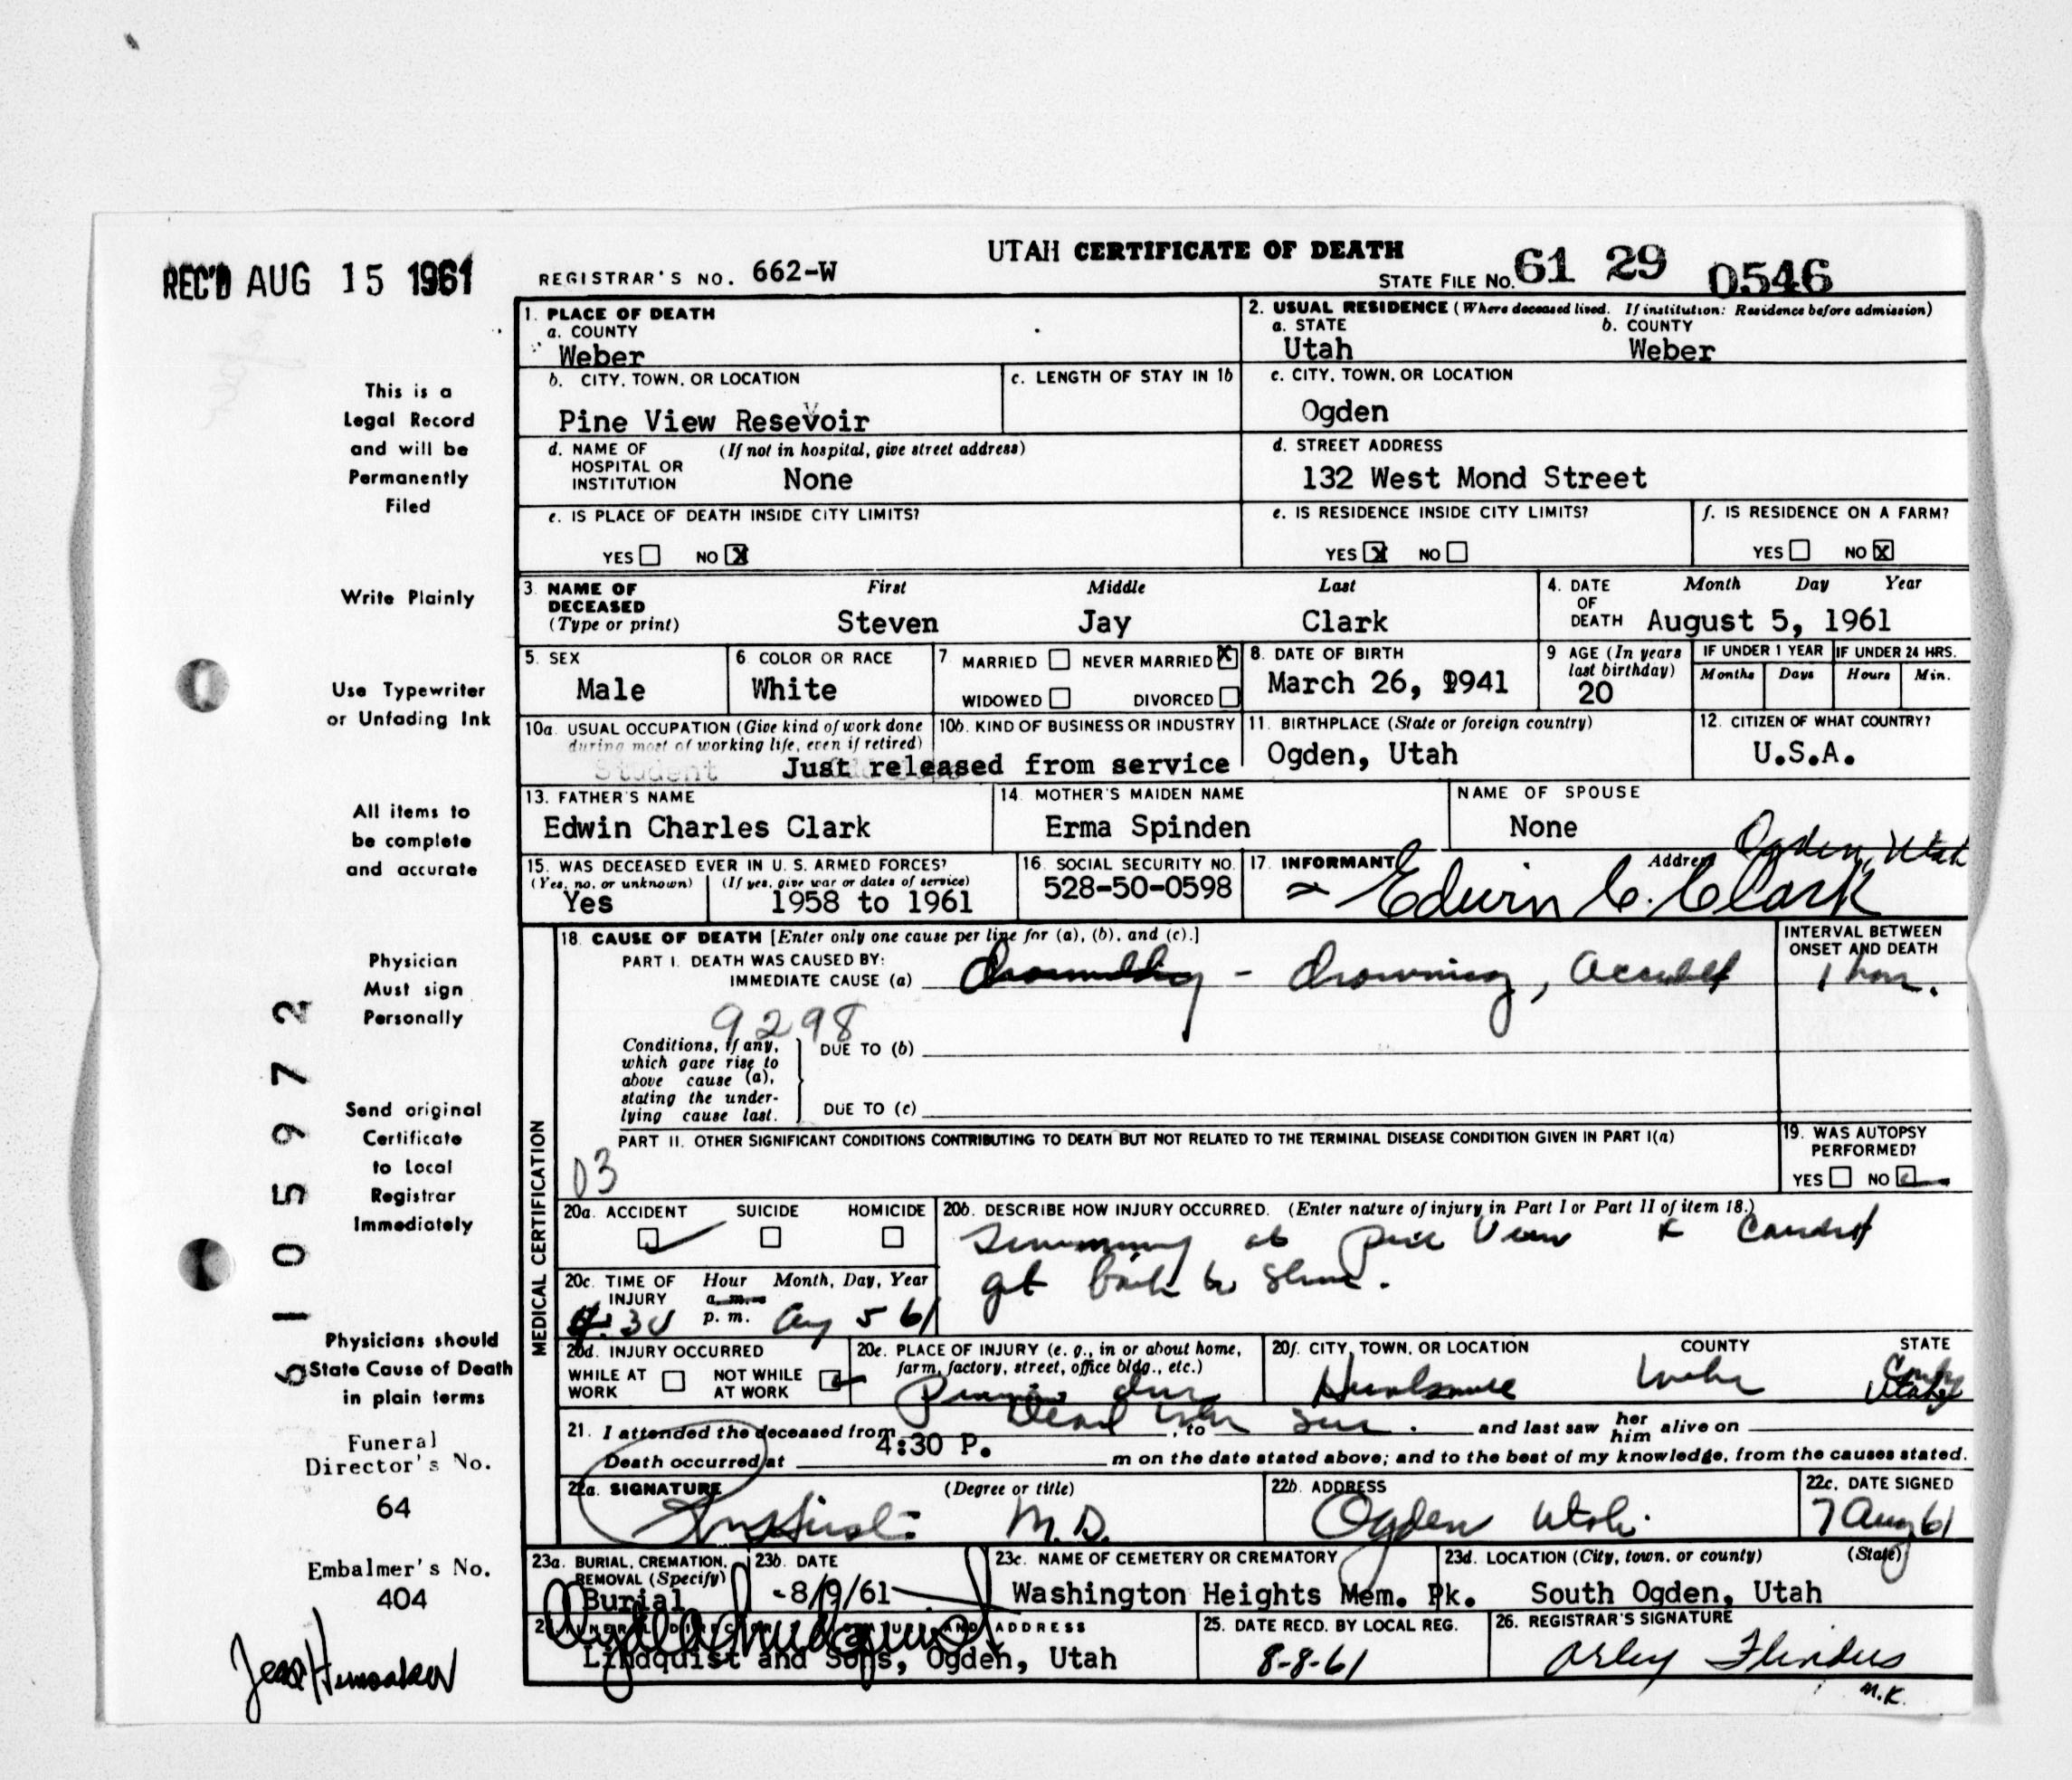 UTAH CERTIFICATE OF DEATH
REC'D AUG 15 1961
REGISTRAR'S NO. 662-W
STATE FILE NO. 61 29 0546
1. PLACE OF DEATH
a. COUNTY
Weber
2. USUAL RESIDENCE (Where deceased lived. If institution: Residence before admission)
a. STATE b. COUNTY
Utah Weber
b. CITY, TOWN, OR LOCATION
Pine View Resevoir
v
c. LENGTH OF STAY IN 1b
c. CITY, TOWN, OR LOCATION
Ogden
d. NAME OF (If not in hospital, give street address)
HOSPITAL OR
INSTITUTION None
d. STREET ADDRESS
132 West Mond Street
e. IS PLACE OF DEATH INSIDE CITY LIMITS?
YES NO X
e. IS RESIDENCE INSIDE CITY LIMITS?
YES X NO
f. IS RESIDENCE ON A FARM?
YES NO X
3. NAME OF DECEASED (Type or print)
First Middle Last
Steven Jay Clark
4. DATE OF DEATH Month Day Year
August 5, 1961
5. SEX
Male
6. COLOR OR RACE
White
7. MARRIED NEVER MARRIED X
WIDOWED DIVORCED
8. DATE OF BIRTH
March 26, 1941
9. AGE (In years last birthday)
20
IF UNDER 1 YEAR IF UNDER 24 HRS.
Months Days Hours Min.
10a. USUAL OCCUPATION (Give kind of work done
during most of working life, even if retired)
Student
10b. KIND OF BUSINESS OR INDUSTRY
Just released from service
11. BIRTHPLACE (State or foreign country)
Ogden, Utah
12. CITIZEN OF WHAT COUNTRY?
U.S.A.
13. FATHER'S NAME
Edwin Charles Clark
14. MOTHER'S MAIDEN NAME
Erma Spinden
NAME OF SPOUSE
None
15. WAS DECEASED EVER IN U. S. ARMED FORCES?
(Yes, no, or unknown) (If yes, give war or dates of service)
Yes 1958 to 1961
16. SOCIAL SECURITY NO.
528-50-0598
17. INFORMANT Address
Ogden, Utah
Edwin C. Clark
MEDICAL CERTIFICATION
18. CAUSE OF DEATH [Enter only one cause per line for (a), (b), and (c).]
PART I. DEATH WAS CAUSED BY:
IMMEDIATE CAUSE (a) - drowning, accident
INTERVAL BETWEEN
ONSET AND DEATH
1 hour.
9298
Conditions, if any,
which gave rise to
above cause (a),
stating the under-
lying cause last.
DUE TO (b)
DUE TO (c)
PART II. OTHER SIGNIFICANT CONDITIONS CONTRIBUTING TO DEATH BUT NOT RELATED TO THE TERMINAL DISEASE CONDITION GIVEN IN PART I(a)
03
19. WAS AUTOPSY
PERFORMED?
YES NO
20a. ACCIDENT SUICIDE HOMICIDE
20b. DESCRIBE HOW INJURY OCCURRED. (Enter nature of injury in Part I or Part II of item 18.)
Swimming at pine View & couldnt
get back to shore.
20c. TIME OF INJURY Hour Month, Day, Year
a. m.
p. m.
4:30 Aug 5 61
20d. INJURY OCCURRED
WHILE AT WORK NOT WHILE AT WORK
20e. PLACE OF INJURY (e. g., in or about home,
farm, factory, street, office bldg., etc.)
20f. CITY, TOWN, OR LOCATION COUNTY STATE
Huntsville Weber Utah
21. I attended the deceased from Dead when seen. , to and last saw her him alive on
Death occurred at 4:30 P. m on the date stated above; and to the best of my knowledge, from the causes stated.
22a. SIGNATURE (Degree or title)
M.D.
22b. ADDRESS
Ogden Utah.
22c. DATE SIGNED
7 Aug 61
23a. BURIAL, CREMATION,
REMOVAL (Specify)
Burial
23b. DATE
8/9/61
23c. NAME OF CEMETERY OR CREMATORY
Washington Heights Mem. Pk.
23d. LOCATION (City, town, or county) (State)
South Ogden, Utah
ADDRESS
Lindquist and Sons, Ogden, Utah
25. DATE RECD. BY LOCAL REG.
8-8-61
26. REGISTRAR'S SIGNATURE
Orley Flinders
M.K.
This is a
Legal Record
and will be
Permanently
Filed
Write Plainly
Use Typewriter
or Unfading Ink
All items to
be complete
and accurate
Physician
Must sign
Personally
Send original
Certificate
to Local
Registrar
Immediately
Physicians should
State Cause of Death
in plain terms
Funeral
Director's No.
64
Embalmer's No.
404
6105972